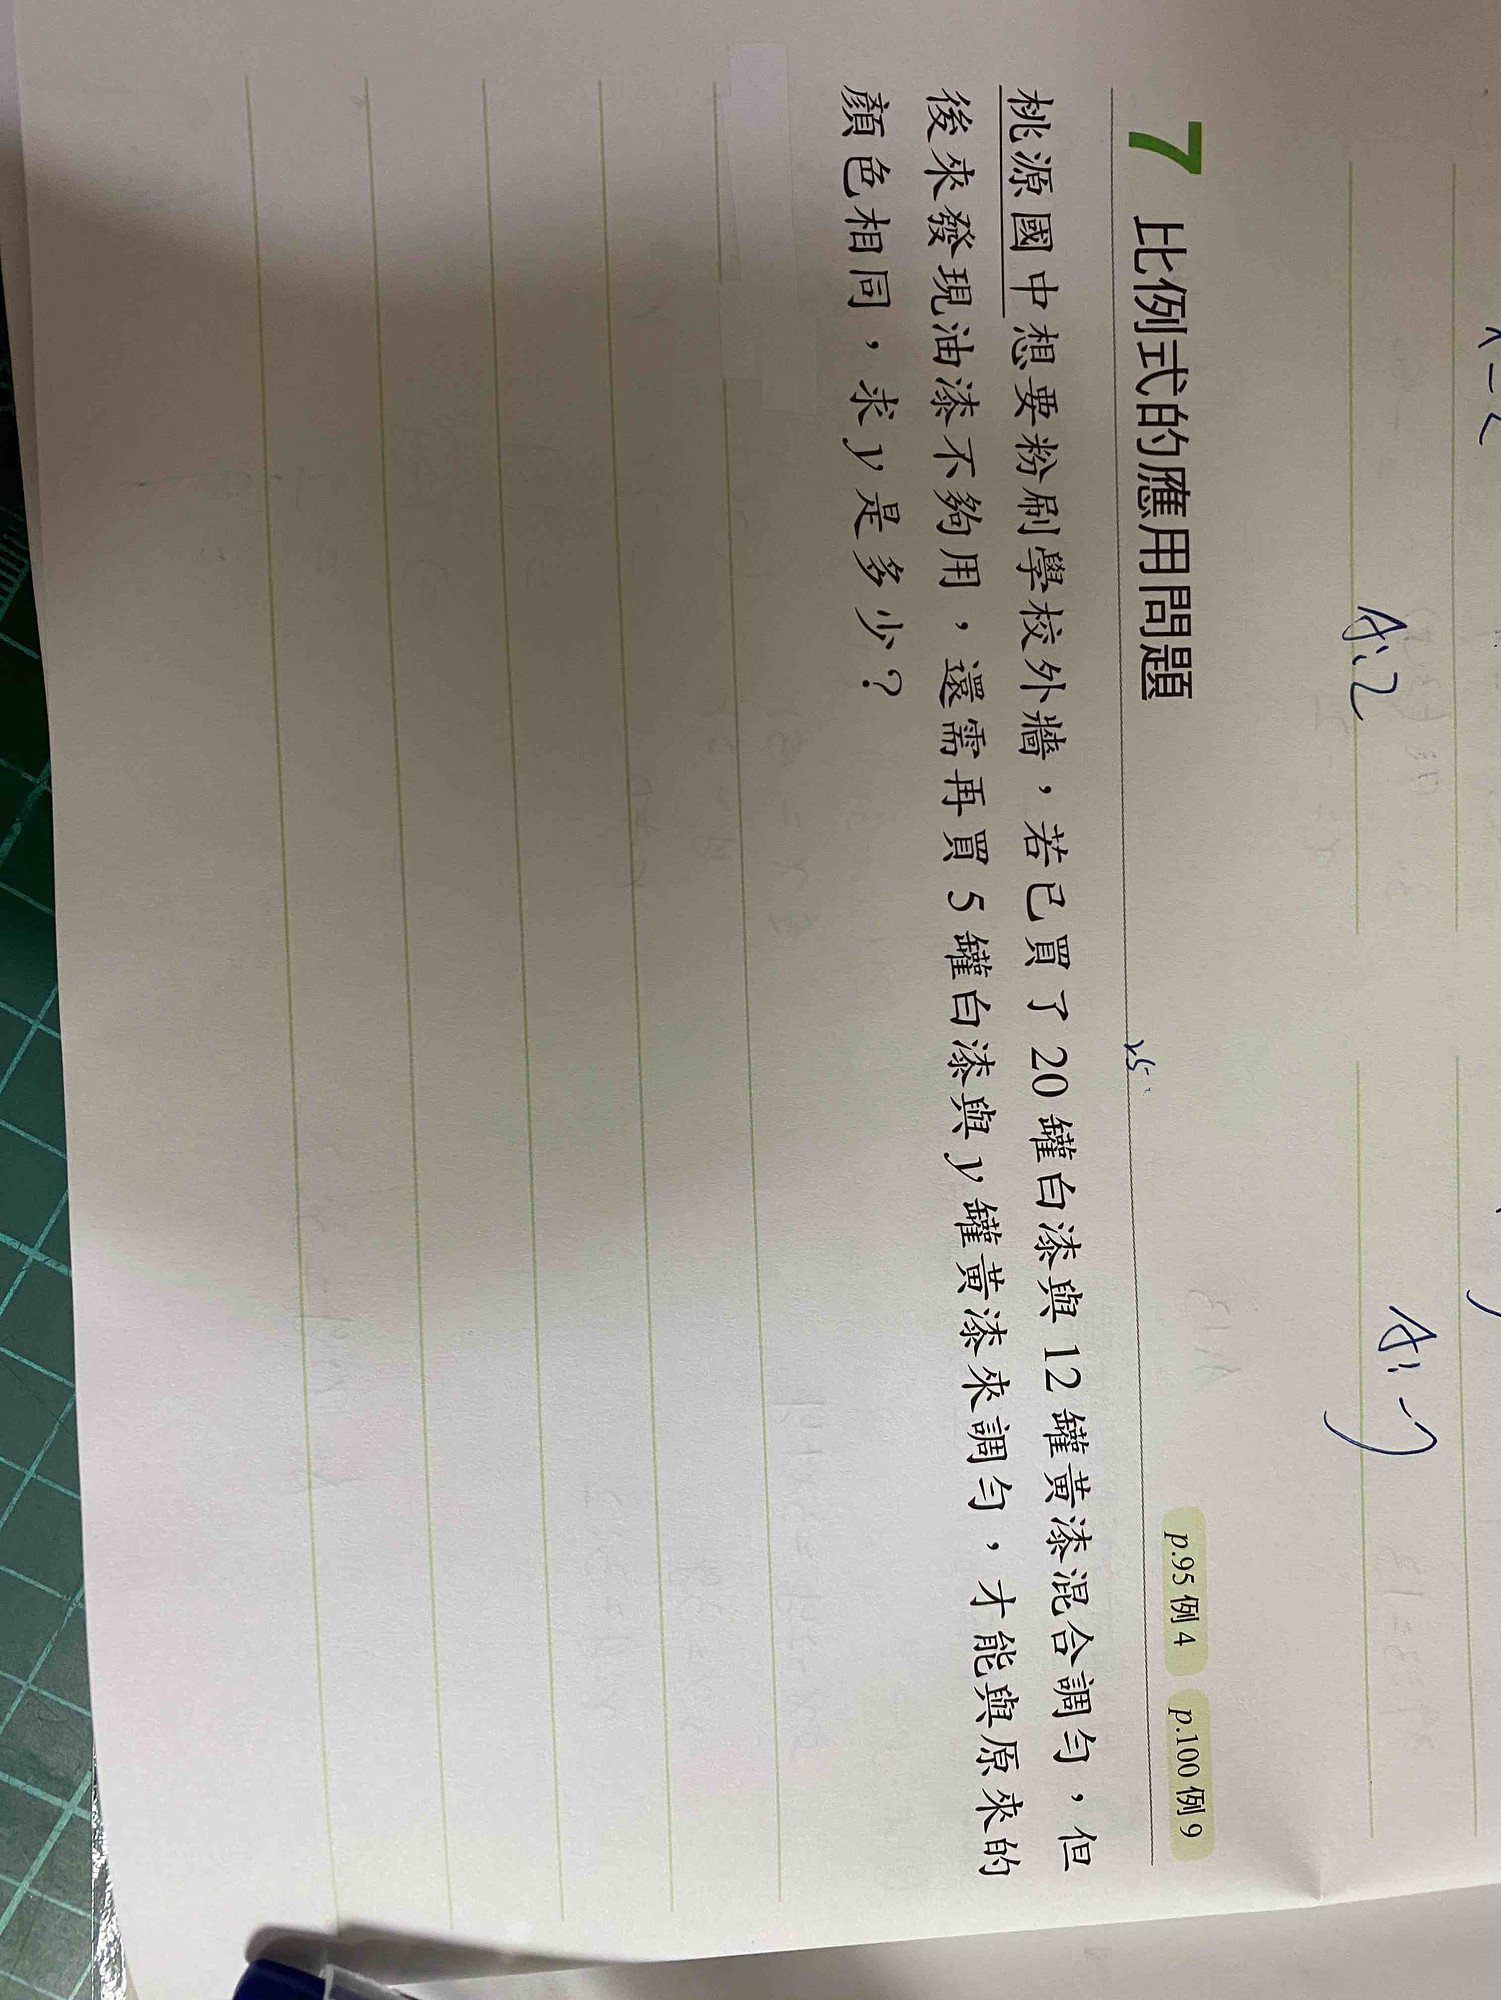 A:2
A:-7
7 比例式的應用問題
p.95 例 4 p.100 例 9
桃源國中想要粉刷學校外牆，若已買了 20 罐白漆與 12 罐黃漆混合調勻，但
後來發現油漆不夠用，還需再買 5 罐白漆與 y 罐黃漆來調勻，才能與原來的
顏色相同，求 y 是多少？